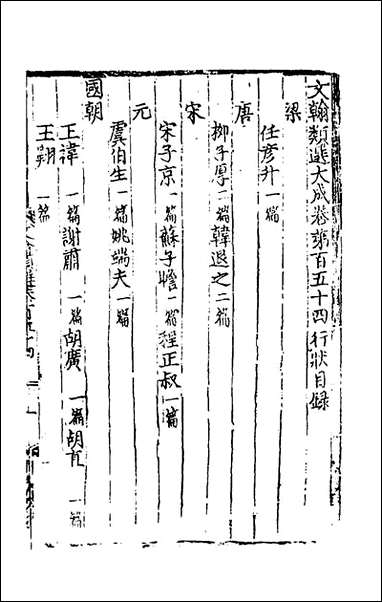 文翰類選大成卷第百五十四行狀目錄
梁
任彥升一篇
唐
柳子厚二篇韓退之二篇
宋
宋子京一篇蘇子瞻一篇程正叔一篇
元
虞伯生一篇姚端夫一篇
國朝
王禕一篇謝肅一篇胡廣一篇胡
一篇
王
一篇